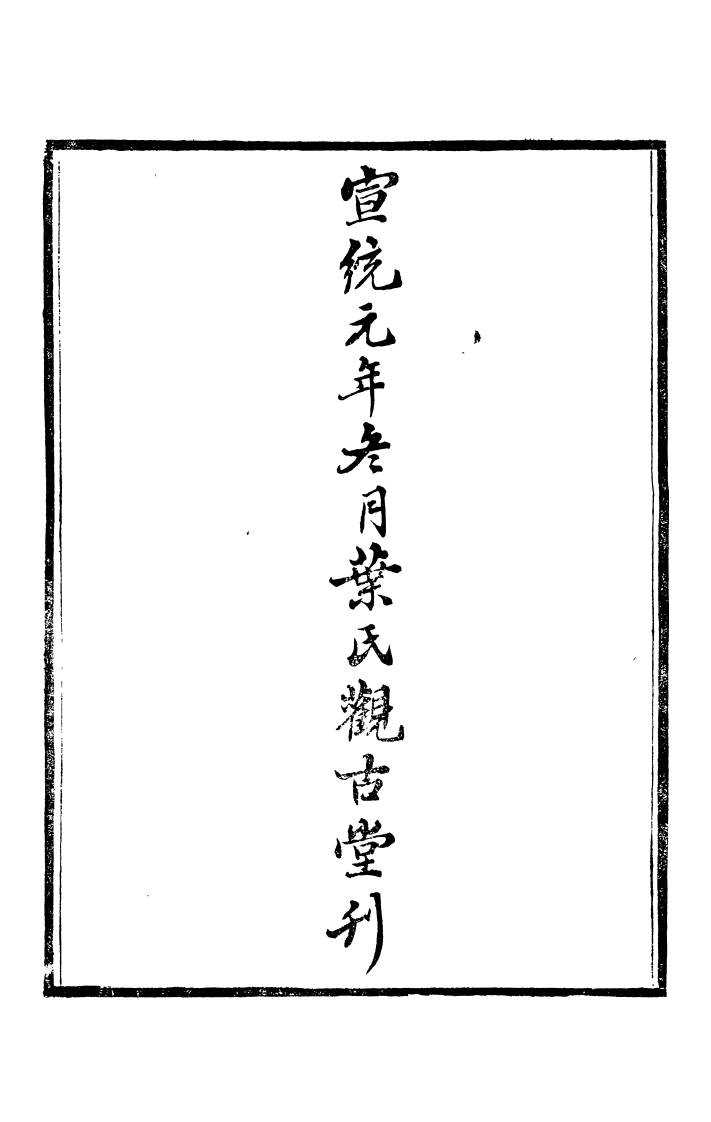 宣統元年冬月葉氏觀古堂刊